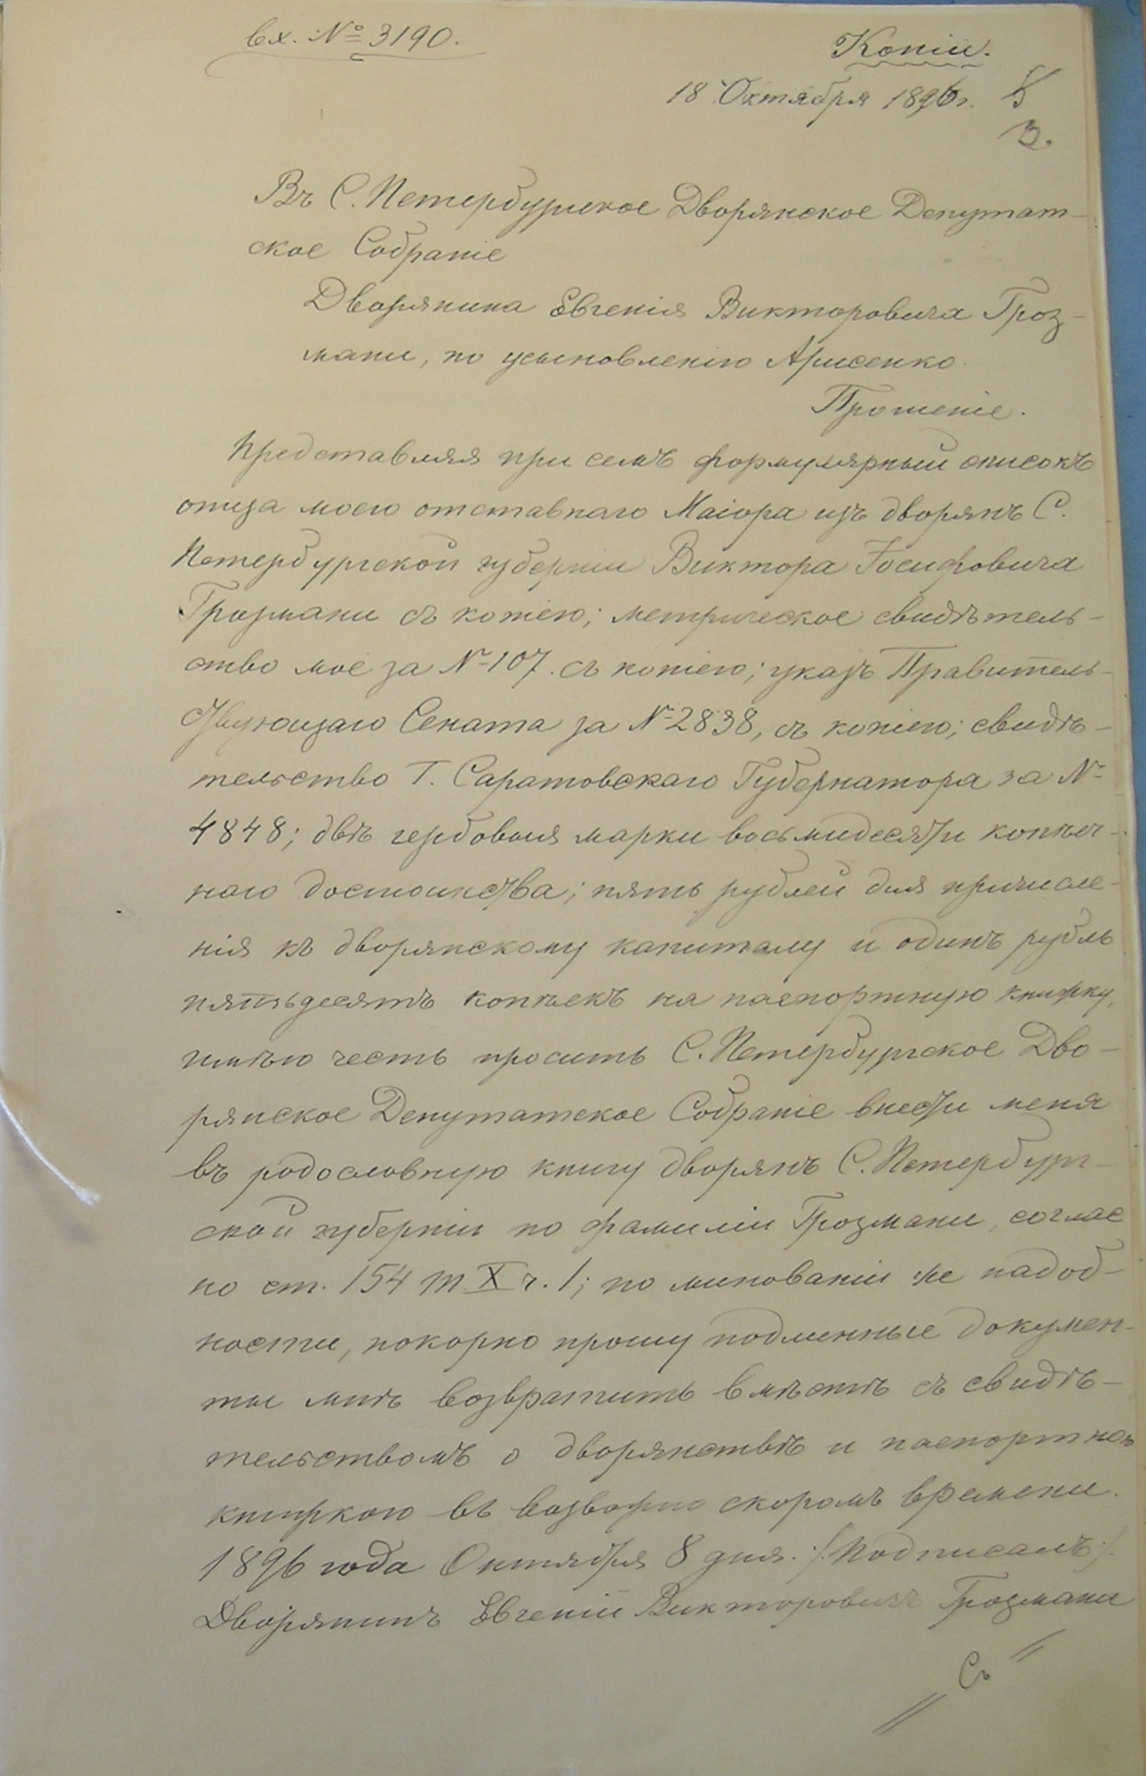 вх. № 3190.
Копія.
18 Октября 1896 г.
Въ С. Петербургское Дворянское Депутат-
ское Собраніе
Дворянина Евгенія Викторовича Гроз-
мани, по усыновленію
Прошеніе.
Представляя при семъ формулярный списокъ
отца моего отставнаго Маіора изъ дворянъ С.
Петербургской губерніи Виктора Іосифовича
Грозмани съ копіею; метрическое свидѣтель-
ство мое за № 107 съ копіею; указъ Правитель-
ствующаго Сената за № 2838, съ копіею; свидѣ-
тельство Г. Саратовскаго Губернатора за №
4848; двѣ гербовыя марки восьмидесяти копѣеч-
наго достоинства; пять рублей для причисле-
нія къ дворянскому капиталу и одинъ рубль
пятьдесятъ копѣекъ на паспортную книжку,
имѣю честь просить С. Петербургское Дво-
рянское Депутатское Собраніе внести меня
въ родословную книгу дворянъ С. Петербург-
ской губерніи по фамиліи Грозмани, соглас
но ст. 154 т X ч. 1; по минованіи же надоб-
ности, покорно прошу подлинные докумен-
ты мнѣ возвратить вмѣстѣ съ свидѣ-
тельствомъ о дворянствѣ и паспортной
книжкою въ возможно скоромъ времени.
1896 года Октября 8 дня. /Подписалъ:/
Дворянинъ Евгеній Викторовичъ Грозмани